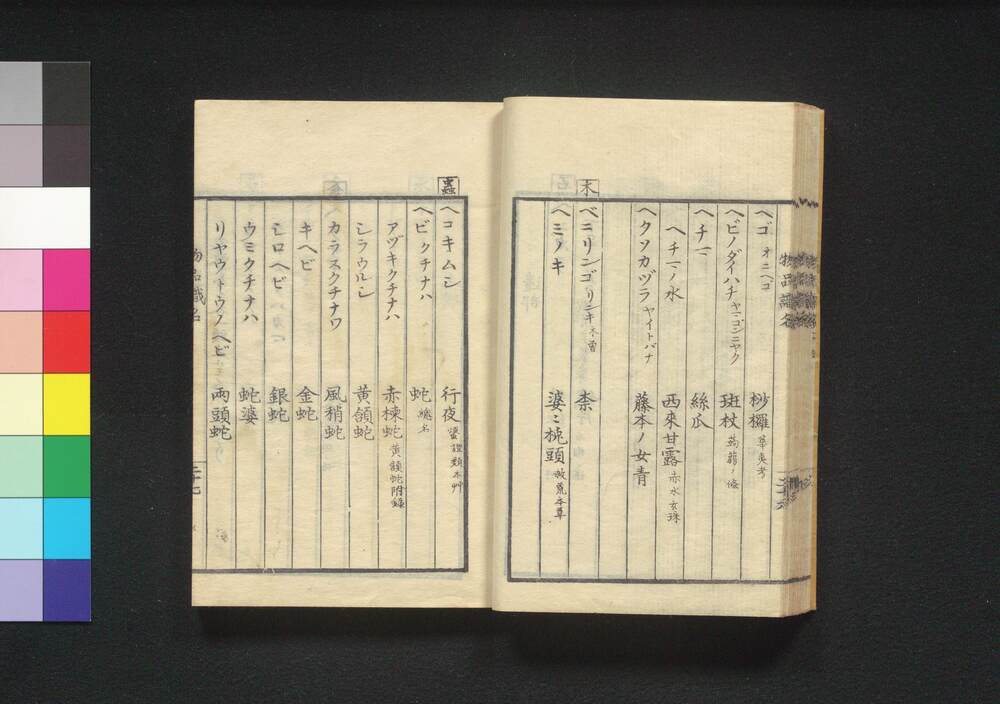 ヘゴ オニヘゴ 桫欏 草夷考
ヘビノダイハチ ヤマゴンニヤク 斑杖 蒟蒻ノ條
ヘチマ 絲瓜
ヘチマノ水 西來甘露 赤水玄珠
ヘクソカヅラ ヤイトバナ 藤本ノ女青
木
ベニリンゴ リンキ 木曽 柰
ヘミノキ 婆ミ枕頭 救荒本草
蟲
ヘコキムシ 行夜 證類本艸
ヘビ クチナハ 蛇 總名
アヅキクチナハ 赤楝蛇 黄頷蛇附録
シラウルシ 黄頷蛇
カラスクチナワ 風梢蛇
キヘビ 金蛇
シロヘビ 銀蛇
ウミクチナハ 蛇婆
リヤウトウノヘビ 両頭蛇
物品識名
三十七